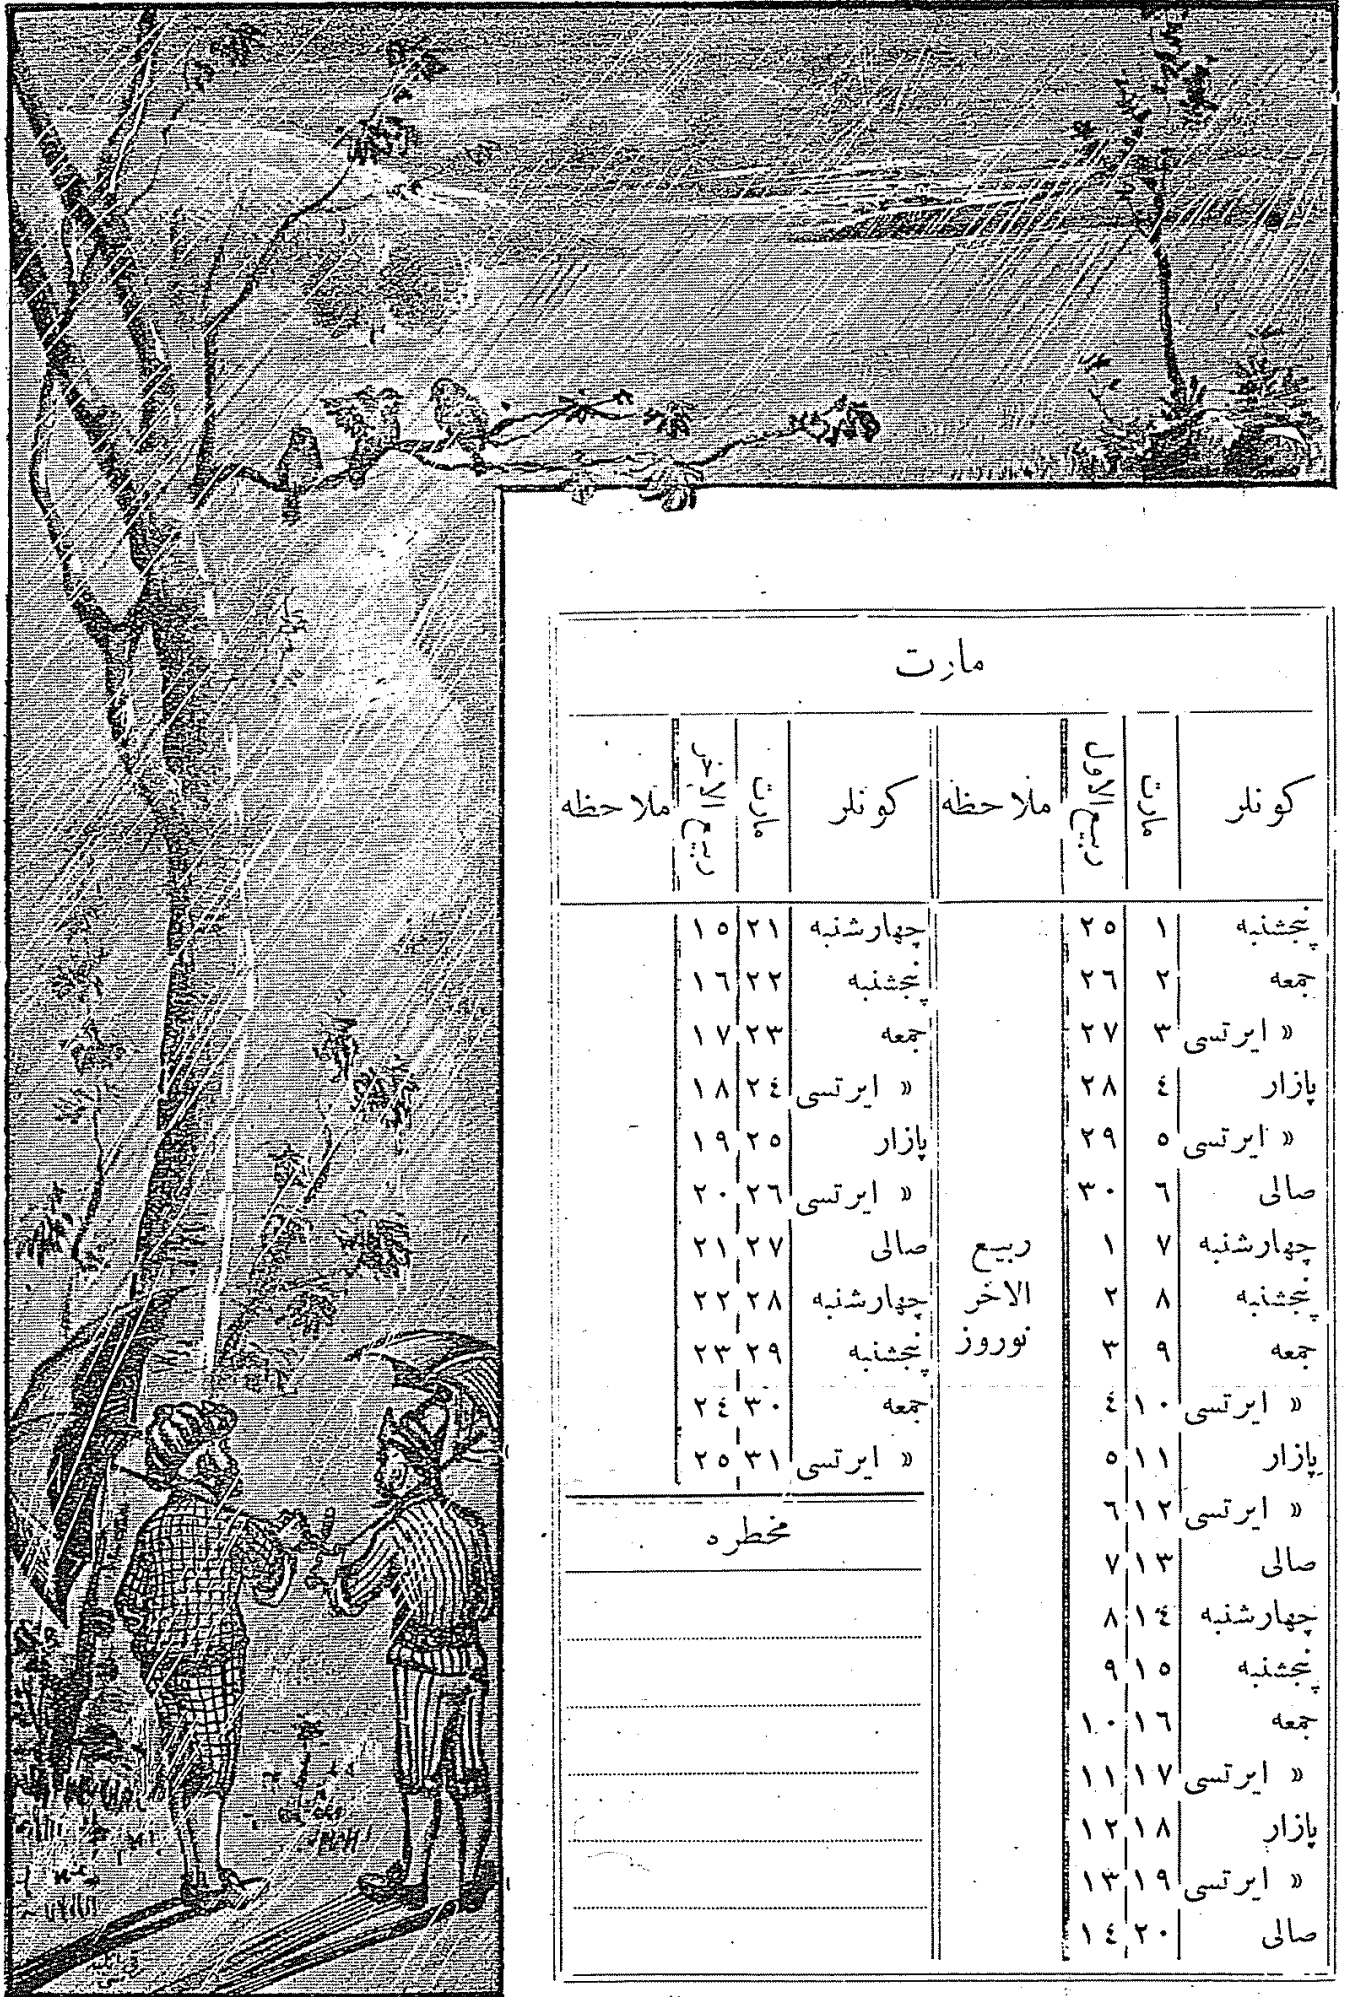 مارت
كونلر مارت ربيع الاول ملاحظه
پنجشنبه ١ ٢٥
جمعه ٢ ٢٦
« ايرتسى ٣ ٢٧
پازار ٤ ٢٨
« ايرتسى ٥ ٢٩
صالى ٦ ٣٠
چهارشنبه ٧ ١ ربيع
پنجشنبه ٨ ٢ الاخر
جمعه ٩ ٣ نوروز
« ايرتسى ١٠ ٤
پازار ١١ ٥
« ايرتسى ١٢ ٦
صالى ١٣ ٧
چهارشنبه ١٤ ٨
پنجشنبه ١٥ ٩
جمعه ١٦ ١٠
« ايرتسى ١٧ ١١
پازار ١٨ ١٢
« ايرتسى ١٩ ١٣
صالى ٢٠ ١٤
كونلر مارت ربيع الاخر ملاحظه
چهارشنبه ٢١ ١٥
پنجشنبه ٢٢ ١٦
جمعه ٢٣ ١٧
« ايرتسى ٢٤ ١٨
پازار ٢٥ ١٩
« ايرتسى ٢٦ ٢٠
صالى ٢٧ ٢١
چهارشنبه ٢٨ ٢٢
پنجشنبه ٢٩ ٢٣
جمعه ٣٠ ٢٤
« ايرتسى ٣١ ٢٥
مخطره